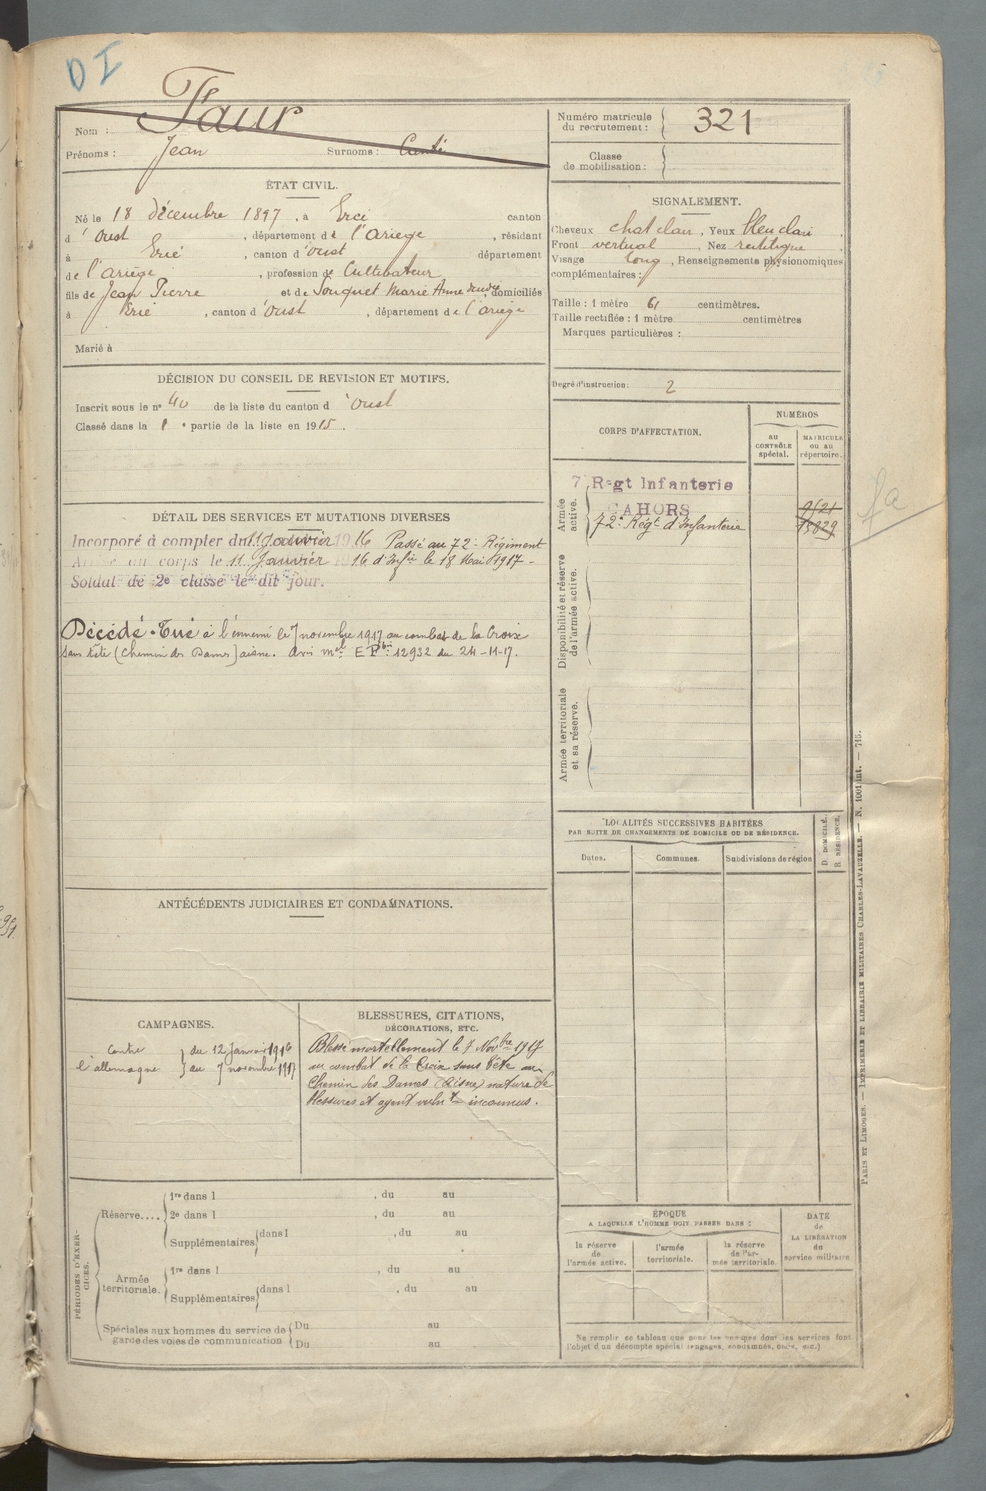 D I
Nom : Faur
Prénoms : Jean Surnoms :
Numéro matricule du recrutement : 321
Classe de mobilisation :
ÉTAT CIVIL.
Né le 18 décembre 1897, à Ercé canton
d'Oust, département de l'Ariège, résidant
à Ercé, canton d'Oust département
de l'ariège, profession de Cultivateur
fils de Jean Pierre et de Souquet Marie Anne domiciliés
à Ercé, canton d'Oust, département de l'ariège
Marié à
SIGNALEMENT.
Cheveux chat clair, Yeux bleu clair
Front vertical, Nez rectiligne
Visage long, Renseignements physionomiques
complémentaires :
Taille : 1 mètre 61 centimètres.
Taille rectifiée : 1 mètre centimètres
Marques particulières :
Degré d'instruction : 2
DÉCISION DU CONSEIL DE REVISION ET MOTIFS.
Inscrit sous le n° 40 de la liste du canton d'Oust
Classé dans la 1e partie de la liste en 1915.
CORPS D'AFFECTATION.
NUMÉROS
AU CONTRÔLE spécial.
MATRICULE ou au répertoire.
Armée active.
7 Regt Infanterie
CAHORS
72e Régt d'Infanterie
Disponibilité et réserve de l'armée active.
Armée territoriale et sa réserve.
DÉTAIL DES SERVICES ET MUTATIONS DIVERSES
Incorporé à compter du 11 Janvier 1916 Passé au 72e Régiment
Arrivé au corps le 11 Janvier 1916 d'Infie le 18 Mai 1917-
Soldat de 2e classe le dit jour.
Décédé. Tué à l'ennemi le 7 novembre 1917 au combat de la Croix
sans tête (Chemin des Dames) aisne. Avis mel E Pbri 12932 du 24-11-17.
fa
LOCALITÉS SUCCESSIVES HABITÉES
PAR SUITE DE CHANGEMENTS DE DOMICILE OU DE RÉSIDENCE.
Dates. Communes. Subdivisions de région
D. DOMICILE. R. RÉSIDENCE.
ANTÉCÉDENTS JUDICIAIRES ET CONDAMNATIONS.
CAMPAGNES.
Contre } du 12 Janvier 1916
l'allemagne } au 7 novembre 1917
BLESSURES, CITATIONS,
DÉCORATIONS, ETC.
Blessé mortellement le 7 Novbre 1917
au combat de la Croix sans tête au
Chemin des Dames (Aisne) nature de
blessures et agent vulnt inconnus.
PÉRIODES D'EXERCICES.
Réserve.... 1re dans l , du au
2e dans l , du au
Supplémentaires dans l , du au
Armée territoriale. 1re dans l , du au
Supplémentaires dans l , du au
Spéciales aux hommes du service de garde des voies de communication
Du au
Du au
ÉPOQUE
A LAQUELLE L'HOMME DOIT PASSER DANS :
la réserve de l'armée active.
l'armée territoriale.
la réserve de l'armée territoriale.
DATE de LA LIBÉRATION du service militaire.
Ne remplir ce tableau que pour les hommes dont les services font
l'objet d'un décompte spécial (engagés, condamnés, omis, etc.)
PARIS ET LIMOGES. — IMPRIMERIE ET LIBRAIRIE MILITAIRES CHARLES-LAVAUZELLE. — N. 1001 int. — 715.